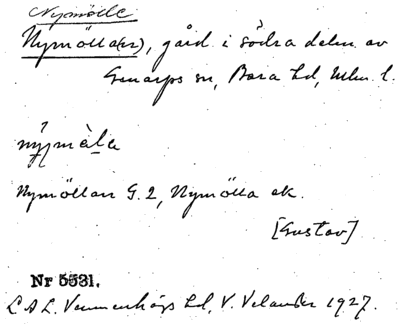 Nymölle
Nymölla(n), gård i södra delen av
Genarps sn, Bara hd, Mlm. l.
Nymöllan G. 2, Nymölla ek.
[Gustav]
Nr 5531.
L A L. Vemmenhögs hd, V. Velander 1927.